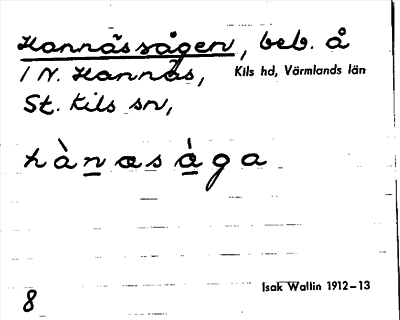 Hannäs sågen, beb. å
1 N. Hannäs, Kils hd, Värmlands län
St. Kils sn,
hànæsàga
Isak Wallin 1912–13
8